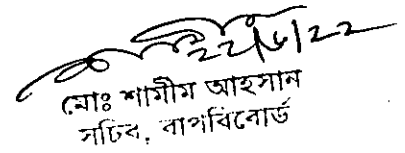 22/6/22
মোঃ শামীম আহসান
সচিব, বাপবিবোর্ড